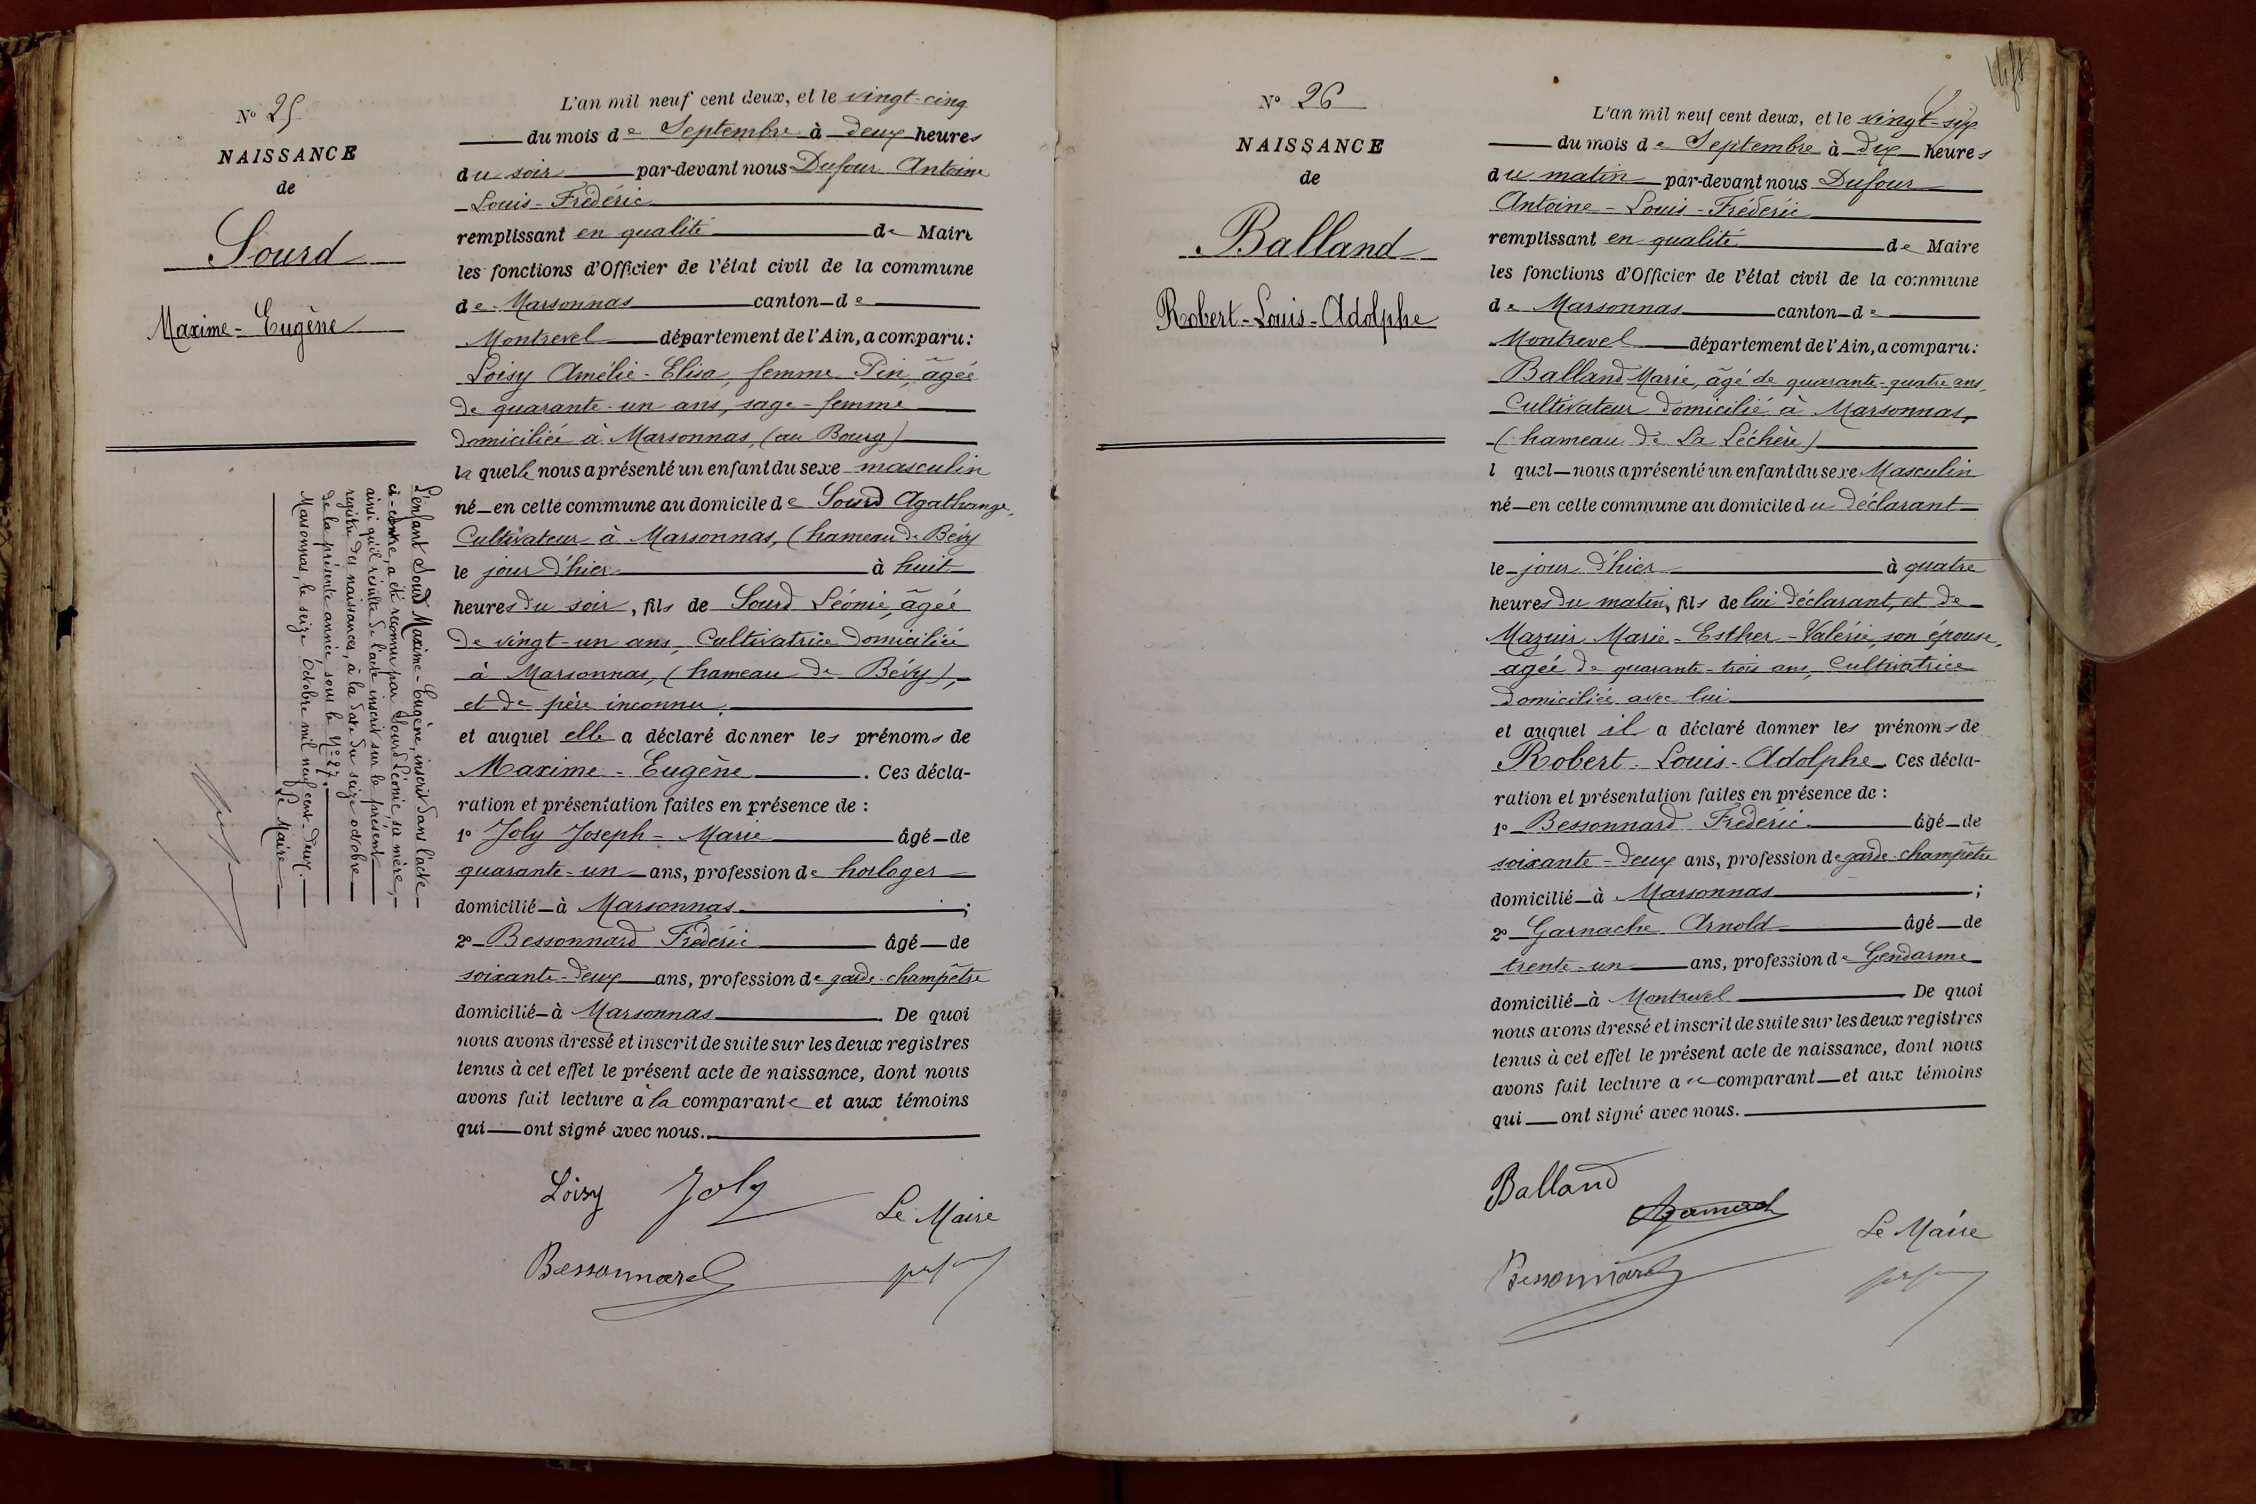 Nº 25
NAISSANCE
de
Sourd
Maxime - Eugène
L'enfant Sourd Maxime - Eugène, inscrit dans l'acte
ci-contre, a été reconnu par Sourd Léonie, sa mère,
ainsi qu'il résulte de l'acte inscrit sur le présent
registre des naissances, à la date du seize octobre
de la présente année sous le Nº 27.
Marsonnas, le seize Octobre mil neuf cent deux.
Le Maire
L'an mil neuf cent deux, et le vingt-cinq
du mois de Septembre à deux heures
du soir par-devant nous Dufour Antoine
Louis-Frédéric
remplissant en qualité de Maire
les fonctions d'Officier de l'état civil de la commune
de Marsonnas canton de
Montrevel département de l'Ain, a comparu:
Loisy Amélie-Elisa, femme Pin, âgée
de quarante-un ans, sage-femme
domiciliée à Marsonnas, (au Bourg)
laquelle nous a présenté un enfant du sexe masculin
né en cette commune au domicile de Sourd Agathange,
Cultivateur à Marsonnas, (hameau de Bévy
le jour d'hier à huit
heures du soir, fils de Sourd Léonie, âgée
de vingt-un ans, Cultivatrice domiciliée
à Marsonnas, (hameau de Bévy),
et de père inconnu.
et auquel elle a déclaré donner les prénoms de
Maxime - Eugène. Ces décla-
ration et présentation faites en présence de :
1º Joly Joseph-Marie âgé de
quarante-un ans, profession de horloger
domicilié à Marsonnas ;
2º Bessonnard Frédéric âgé de
soixante-deux ans, profession de garde-champêtre
domicilié à Marsonnas. De quoi
nous avons dressé et inscrit de suite sur les deux registres
tenus à cet effet le présent acte de naissance, dont nous
avons fait lecture à la comparante et aux témoins
qui ont signé avec nous.
Loisy Joly
Le Maire
Bessonnard
Nº 26
NAISSANCE
de
Balland
Robert-Louis-Adolphe
L'an mil neuf cent deux, et le vingt-six
du mois de Septembre à dix heures
du matin par-devant nous Dufour
Antoine-Louis-Frédéric
remplissant en qualité de Maire
les fonctions d'Officier de l'état civil de la commune
de Marsonnas canton de
Montrevel département de l'Ain, a comparu:
Balland Marie, âgé de quarante-quatre ans,
Cultivateur domicilié à Marsonnas,
(hameau de La Léchère)
lequel nous a présenté un enfant du sexe Masculin
né en cette commune au domicile du déclarant
le jour d'hier à quatre
heures du matin, fils de lui déclarant, et de
Mazuir Marie-Esther-Valérie, son épouse,
âgée de quarante-trois ans, Cultivatrice
domiciliée avec lui
et auquel il a déclaré donner les prénoms de
Robert-Louis-Adolphe Ces décla-
ration et présentation faites en présence de :
1º Bessonnard Frédéric âgé de
soixante-deux ans, profession de garde-champêtre
domicilié à Marsonnas ;
2º Garnache Arnold âgé de
trente-un ans, profession de Gendarme
domicilié à Montrevel De quoi
nous avons dressé et inscrit de suite sur les deux registres
tenus à cet effet le présent acte de naissance, dont nous
avons fait lecture au comparant et aux témoins
qui ont signé avec nous.
Balland
Le Maire
Bessonnard